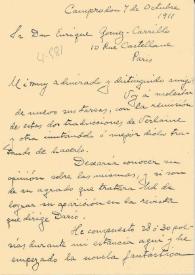 Camprodon 7 de Octubre
1911
Sr Don Enrique Gomez-Carrillo
10 Rue Castellane
Paris
Mi muy admirado y distinguido amigo
Voy a molestar
de nuevo su atención, con la remisión
de estas dos traducciones de Verlaine
y otra intentando ó mejor dicho tra-
tando de hacerlo.
Desearia conocer su
opinion sobre las mismas, y si son
de su agrado que tratara Vd de
lograr su aparición en la revista
que dirige Dario.
He compuesto 28 ó 30 poe-
sias durante mi estancia aqui y he
empezado la novela fantastica